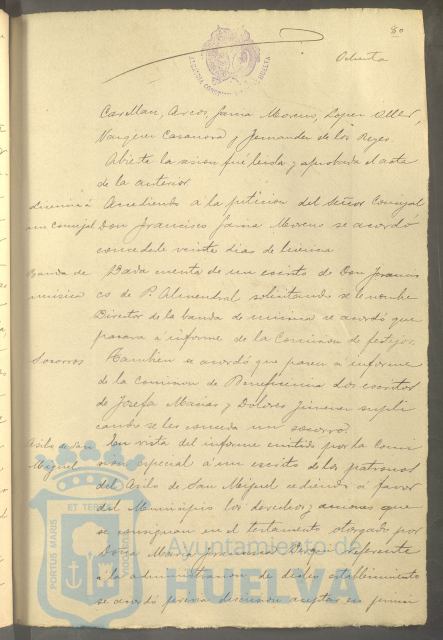 80
Ochenta
Casellan, Arcos, Jaina Moreno, Lopez Oller,
Vazquez Casanova y Fernandez de los Reyes
Abierta la sesion fué leida y aprobada el acta
de la anterior
licencia á Accediendo a la peticion del señor Concejal
un Concejal Don Francisco Jaina Moreno se acordó
concederle veinte dias de licencia
Banda de Dada cuenta de un escrito de Don Francis
musica co de P. Almendral solicitando se le nombre
Director de la banda de musica se acordó que
pasara á informe de la Comision de festejos.
Socorros Tambien se acordó que pasen á informe
de la Comision de Beneficencia dos escritos
de Josefa Macias y Dolores Jimenez supli
cando se les conceda un socorro.
Asilo de San En vista del informe emitido por la Comi
Miguel sion especial á un escrito de los patronos
del Asilo de San Miguel cediendo á favor
del Municipio los derechos y acciones que
se consignan en el testamento otorgado por
Doña Maria referente
á la administracion de dicho establecimiento
se acordó previa discusion aceptar en princi
Ayuntamiento de
HUELVA
PORTUS MARIS
ET TERRAE
CUSTODIA